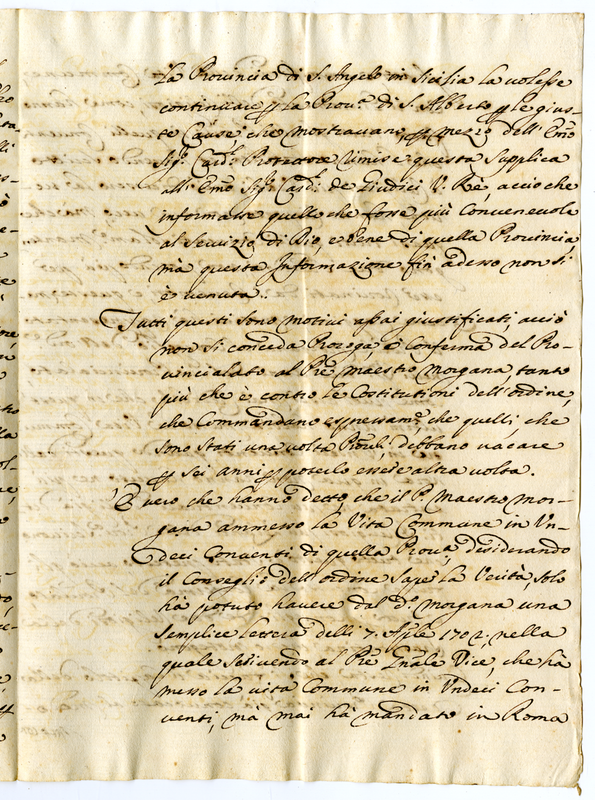 la Provincia di S. Angelo in Sicilia la volesse
continuare p la Prov.ᵃ di S. Alberto p le gius-
te Cause che mostravano, p mezzo dell' Emo
Sig.ʳ Card.ˡ Protettore rimise questa supplica
all' Emo Sig.ʳ Card.ˡ de Giudici V. Rè, acciò che
informasse quello che fosse più Convenevole
al Servizio di Dio, e bene di quella Provincia,
mà questa Informazione fin' adesso non si
è venuta.
Tutti questi sono motivi assai giustificati, acciò
non si conceda Proroga, ò Conferma del Pro-
vincialato al Pre Maestro Morgana tanto
più che è contro le Costitutioni dell' ordine,
che Commandano espressam.ᵉ, che quelli, che
sono stati una volta Prouli, debbano vacare
p sei anni p poterlo essere altra volta.
È vero che hanno detto, che il P. Maestro Mor-
gana ammesso la Vita Commune in Un-
deci Conventi di quella Prov.ᵃ, desiderando
il Conseglio dell' ordine saper la Verità, solo
hà potuto havere dal d.º Morgana una
semplice lettera delli 7. Aple 1702. nella
quale scrivendo al Pre Gnale dice, che hà
messo la vita Commune in Undeci Con-
venti, mà mai hà mandato in Roma